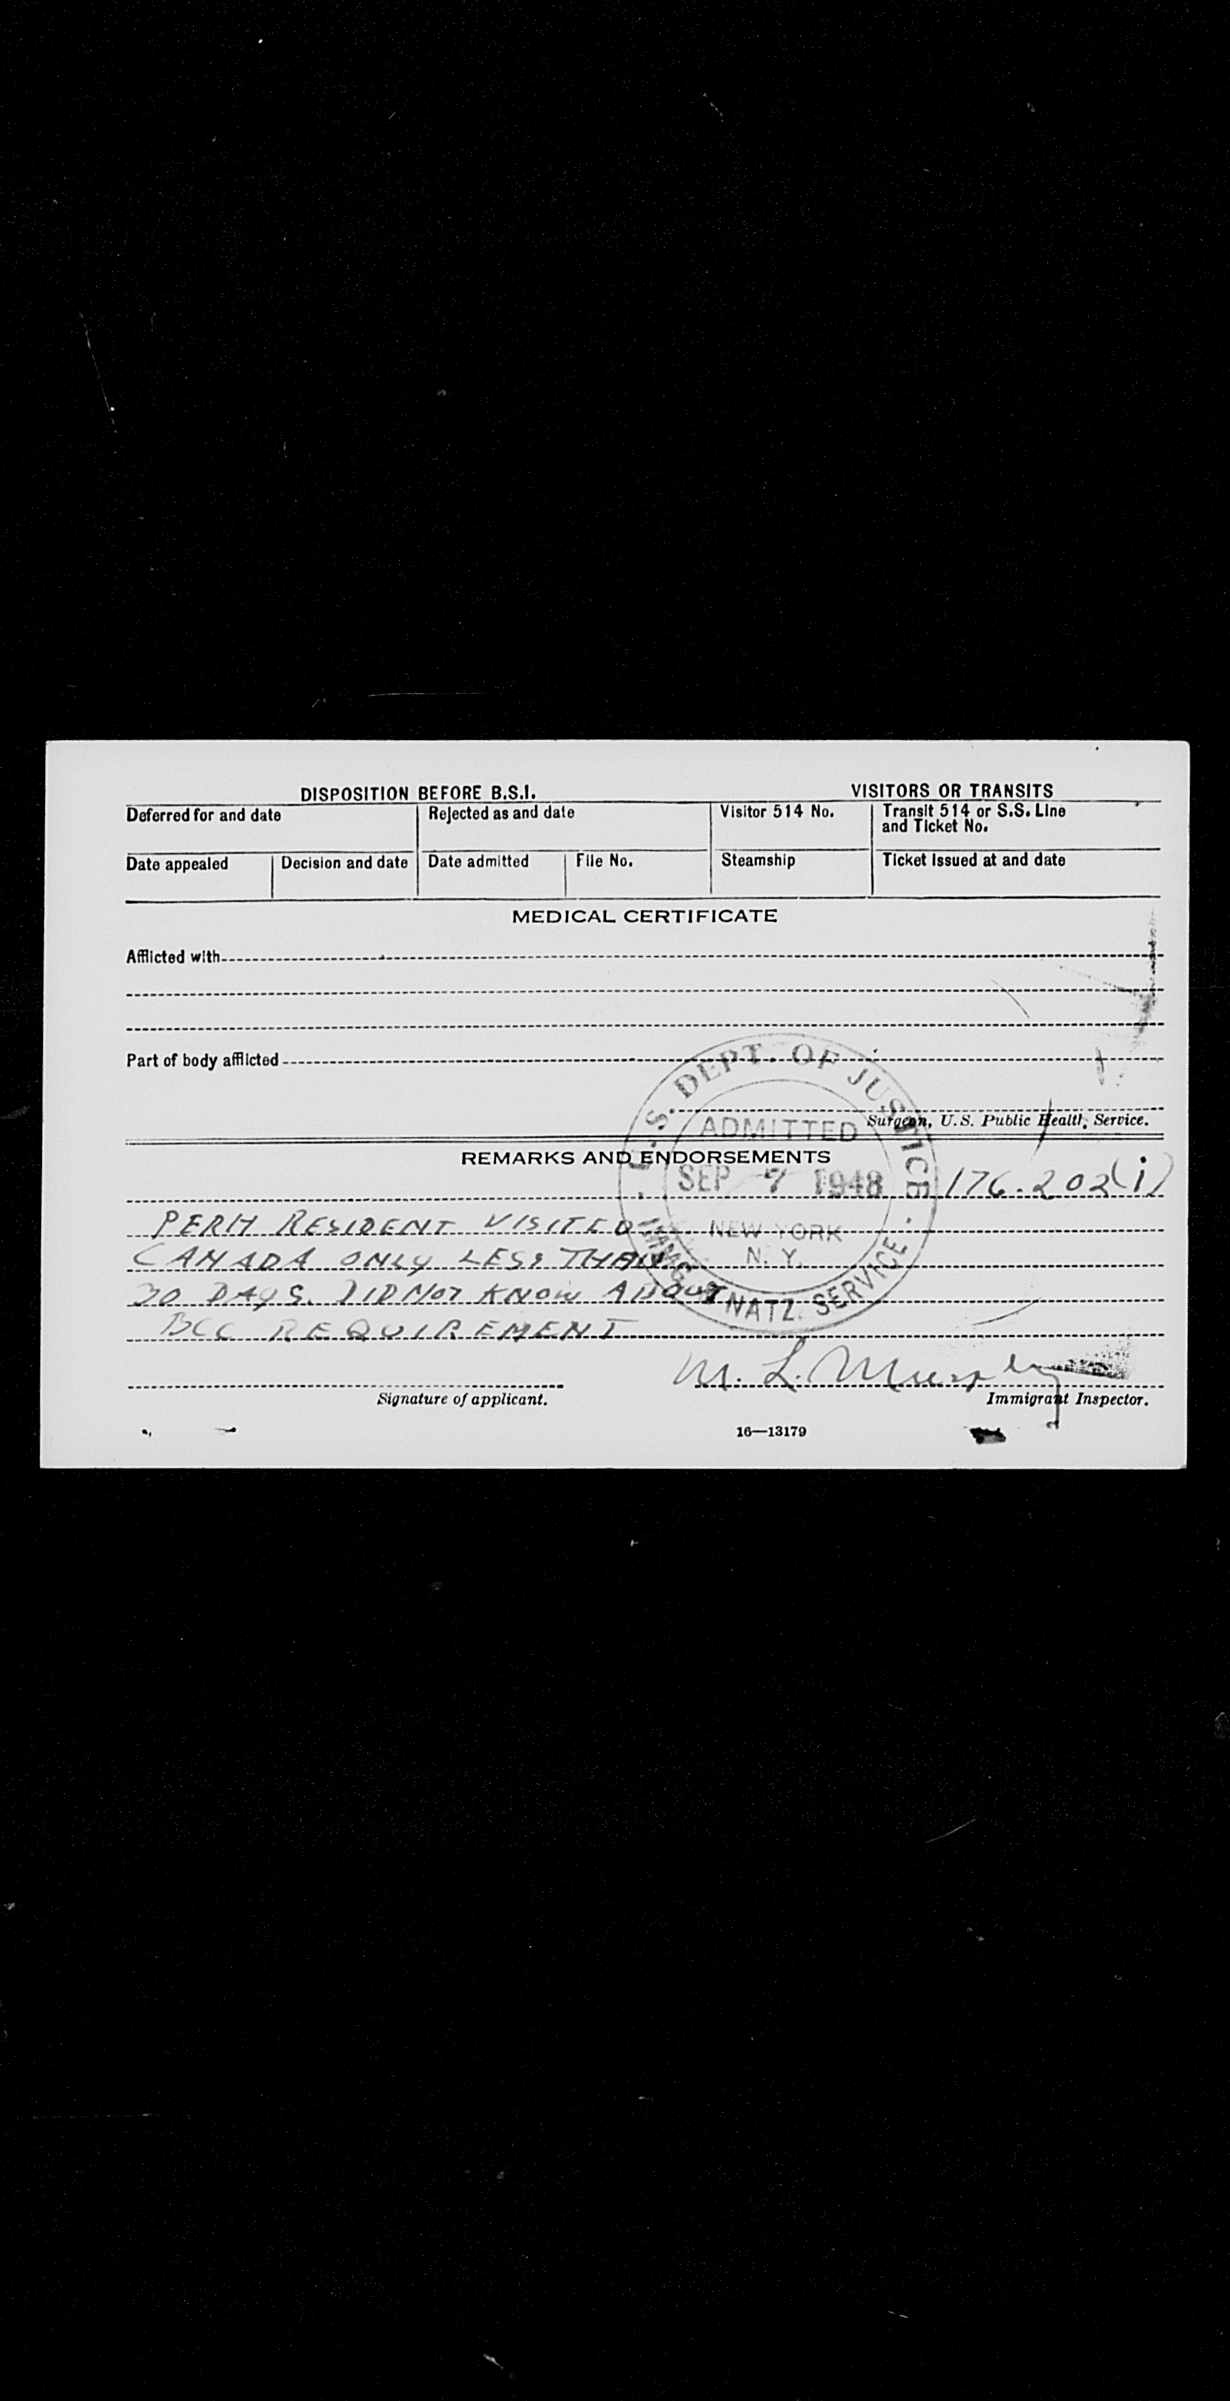 DISPOSITION BEFORE B.S.I.
VISITORS OR TRANSITS
Deferred for and date
Rejected as and date
Visitor 514 No.
Transit 514 or S.S. Line
and Ticket No.
Date appealed
Decision and date
Date admitted
File No.
Steamship
Ticket issued at and date
MEDICAL CERTIFICATE
Afflicted with
Part of body afflicted
Surgeon, U.S. Public Health Service.
REMARKS AND ENDORSEMENTS
U.S. DEPT. OF JUSTICE
ADMITTED
SEP 7 1948
NEW YORK
N. Y.
IMMIG. & NATZ. SERVICE
176.202(i)
PERM RESIDENT VISITED
CANADA ONLY LESS THAN
30 DAYS. DID NOT KNOW ABOUT
BCC REQUIREMENT
M. L. Murphy
Signature of applicant.
Immigrant Inspector.
16—13179